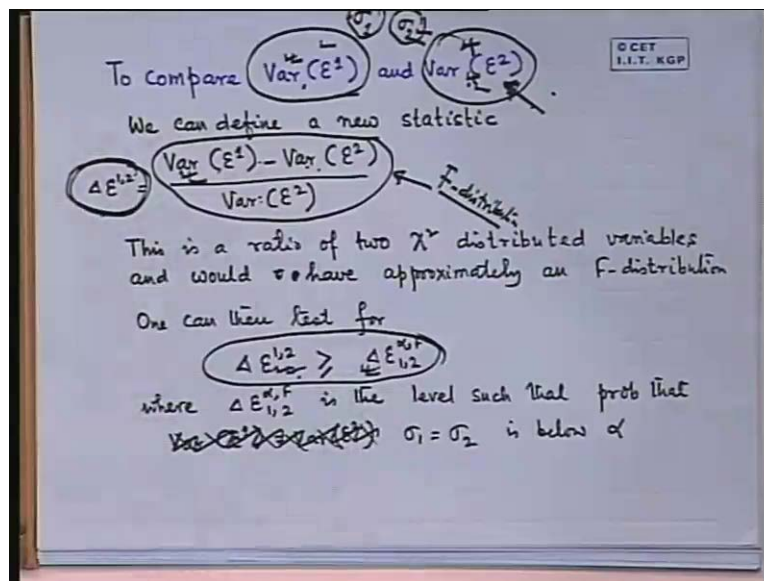 σ₁ σ₂
© CET
I.I.T. KGP
To compare Var.(ε¹) and Var.(ε²)
We can define a new statistic
Δε^{1,2} = (Var(ε¹) - Var.(ε²)) / Var.(ε²)
F-distribution
This is a ratio of two χ² distributed variables
and would have approximately an F-distribution
One can then test for
Δε^{1,2} ≥ Δε_{1,2}^{α,F}
where Δε_{1,2}^{α,F} is the level such that prob that
σ₁ = σ₂ is below α